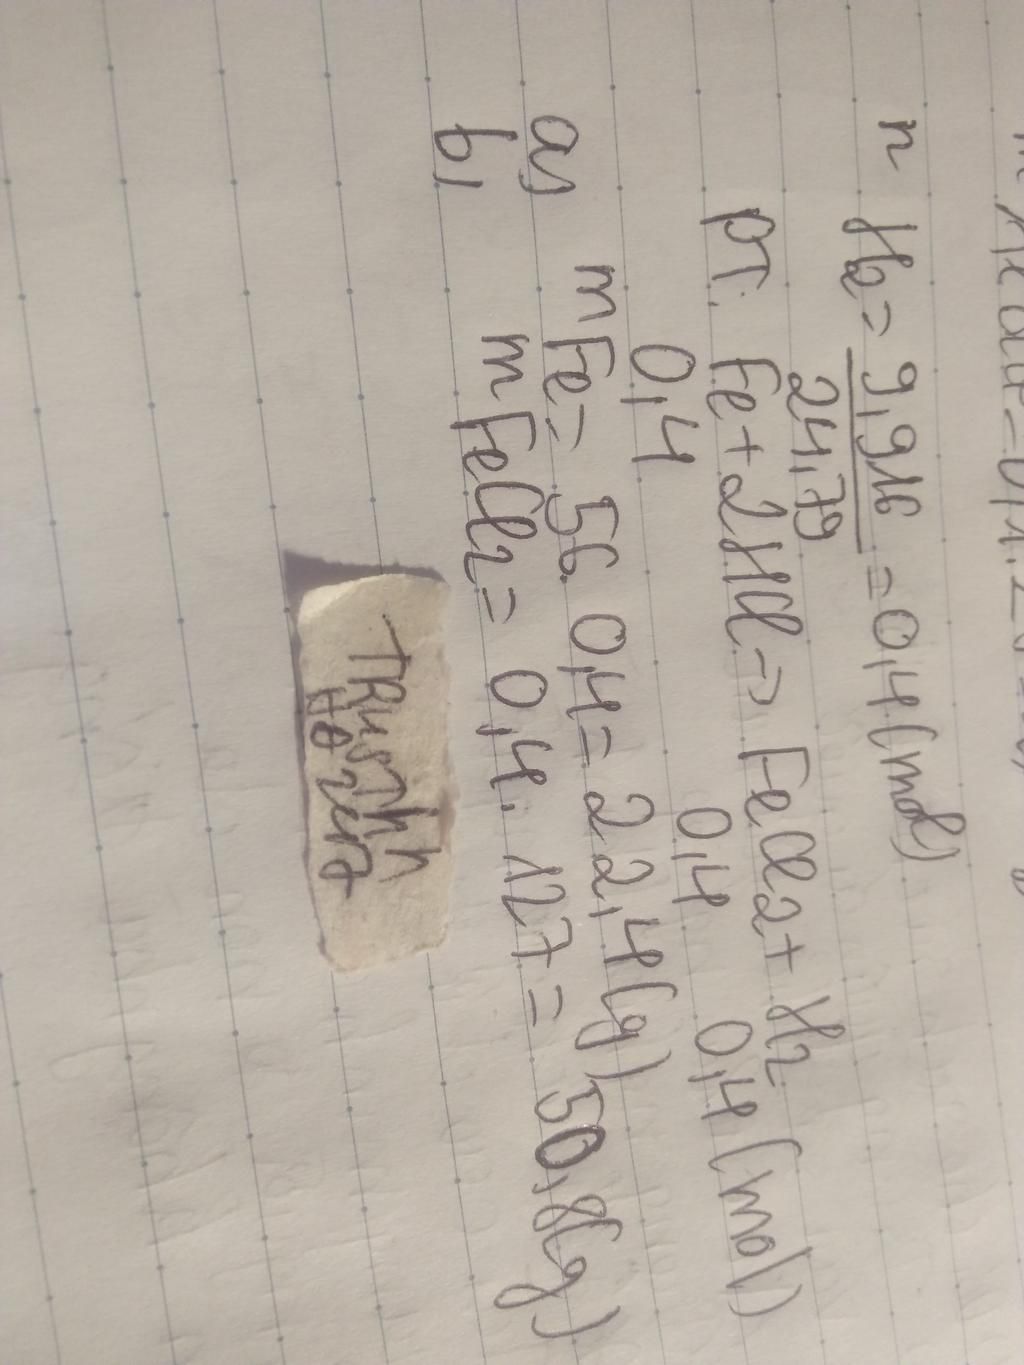 n H2 = 9,916 / 24,79 = 0,4 (mol)
PT: Fe + 2HCl -> FeCl2 + H2
0,4 0,4 0,4 (mol)
a, mFe = 56.0,4 = 22,4 (g)
b, mFeCl2 = 0,4.127 = 50,8 (g)